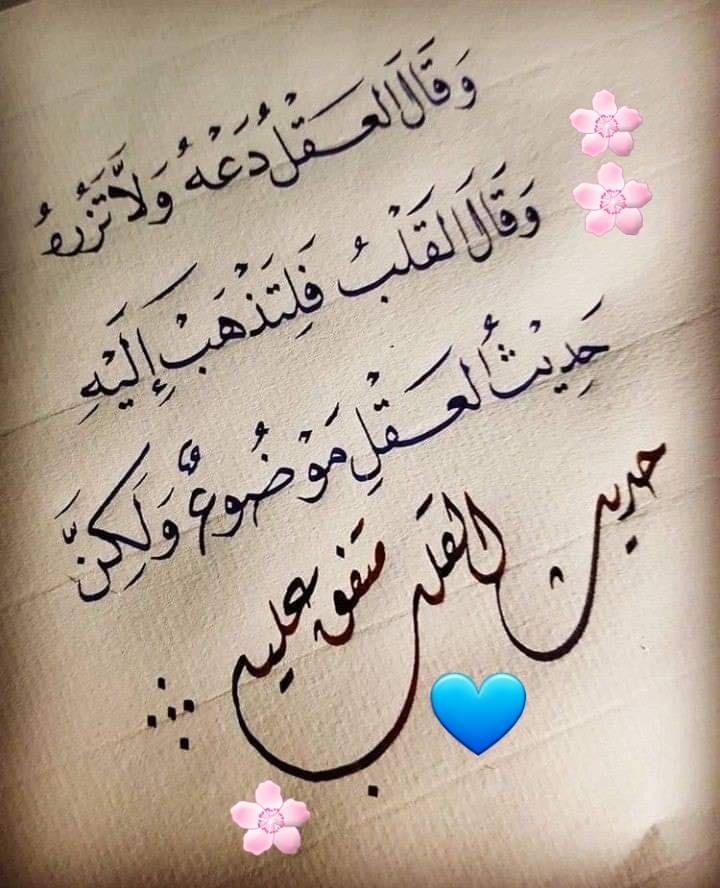 وَقَالَ العَقْلُ دَعْهُ وَلَا تَزُرهُ
وَقَالَ القَلْبُ فَلِتَذْهَبْ إِلَيْهِ
حَدِيْثُ العَقْلِ مَوْضُوعٌ وَلَكِنَّ
حديث القلب متفق عليه